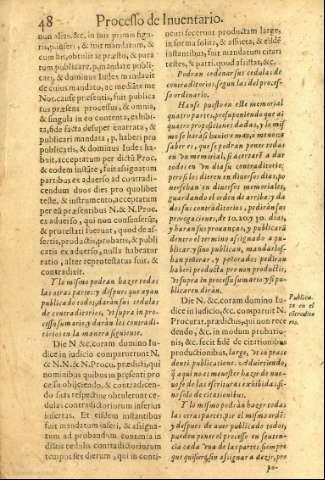 48 Processo de Inuentario.
nun alias, &c. in suis primo figu-
ris, paßueri, & fuit mandatum, &
cum his, obtulit se præsto, & para-
tum publicare, p, mandate publi-
cati, & dominus Iudex mandauit
de cuius mandato, ac mediāte me
Not. causæ præsentis, fuit publica
tus præsens processus, & omnia,
& singula in eo contenta, exhibi-
ta, fide facta desuper enarrata, &
publicari mandata, p, haberi pro
publicatis, & dominus Iudex ha-
buit, acceptatum per dictū Proc.
& eodem instāte, fuit assignatum
partibus ex aduerso ad contradi-
cendum duos dies pro quolibet
teste, & instrumento, acceptatum
per eā præsentibus N. & N. Proc.
ex aduerso, qui non consenserūt,
& protestati fuerunt, quod de as-
sertis, productis, probatis, & publi
catis ex aduerso, nulla habeatur
ratio, aliter reprotestatus fuit, &
contradixit.
Y lo mismo podran hazer todas
las otras partes: y despues que ayan
publicado todos, daràn sus cedulas
de contradictorios, vt supra in pro-
cessu sumario, y daràn las contradi-
torios en la manera siguiente.
Die N. &c. coram domino Iu-
dice in iudicio comparuerunt N.
& N. N. & N. Procu. prædicti, qui
nominibus quibus in præsenti pro
cessu obijciendo, & contradicen-
do suas respectiue obtulerunt ce-
dulas contradictoriorum inferius
insertas. Et eisdem instantibus
fuit mandatum inseri, & assigna-
tum ad probandum contenta in
dictis cedulis contradictoriorum
tempus sex dierum, qui in conti-
nenti fecerunt productam large,
in forma solita, & assueta, & eisdē
instantibus fuit mandatum citari
testes, & parti, quod assistat, &c.
Podran ordenar sus cedulas de
contraditorios, segun las del proces-
so ordinario.
Hanse puesto en este memorial
quatro partes, presuponiendo que ai
quatro proposiciones dadas, y lo mis
mo se hara si huuiere mas, y menos: a
saber es, que se podran poner todas
en vn memorial, si acertarē a dar
todos en vn dia su contradictorio:
pero si les dieren en diuersos dias, po
nerse han en diuersos memoriales,
guardando el orden de arriba, y da
dos sus contradictorios, pedirānsus
prorogaciones, de 10. 20 y 30. dias,
y haran sus prouanças, y publicarā
dentro el termino assignado a pu-
blicar y sino publican, mandarlos
han penitar, y petorādos pedirān
haberi producta pro non productis,
vt supra in processu sumario y si pu-
blicaren dirān.
Die N. &c. coram domino Iu-
dice in iudicio, &c. comparuit N.
Procurat. prædictus, qui non rece
dendo, &c. in modum probatio-
nis, &c. fecit fidē de citationibus
productionibus, large, vt in præce
denti publicatione. Aduirtiendo,
q̄ aqui no es menester hazer de nue-
uo fe de las escrituras exhibidas, si-
no solo de citationibus.
Y lo mismo podràn hazer todas
las otras partes, por el mismo orde:
y despues de auer publicado todos,
pueden poner el processo en senten-
cia cada vna de las partes, siempre
que quisiere, sin assignar a dezir, pro
po-
Publica-